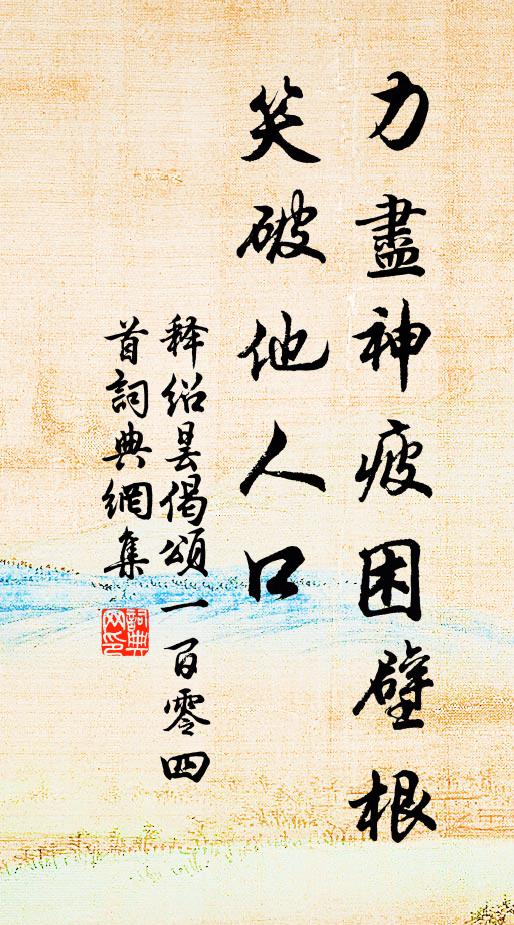 力盡神疲困壁根
笑破他人口
释紹曇偈頌一百零四
首詞典網集
詞典网印